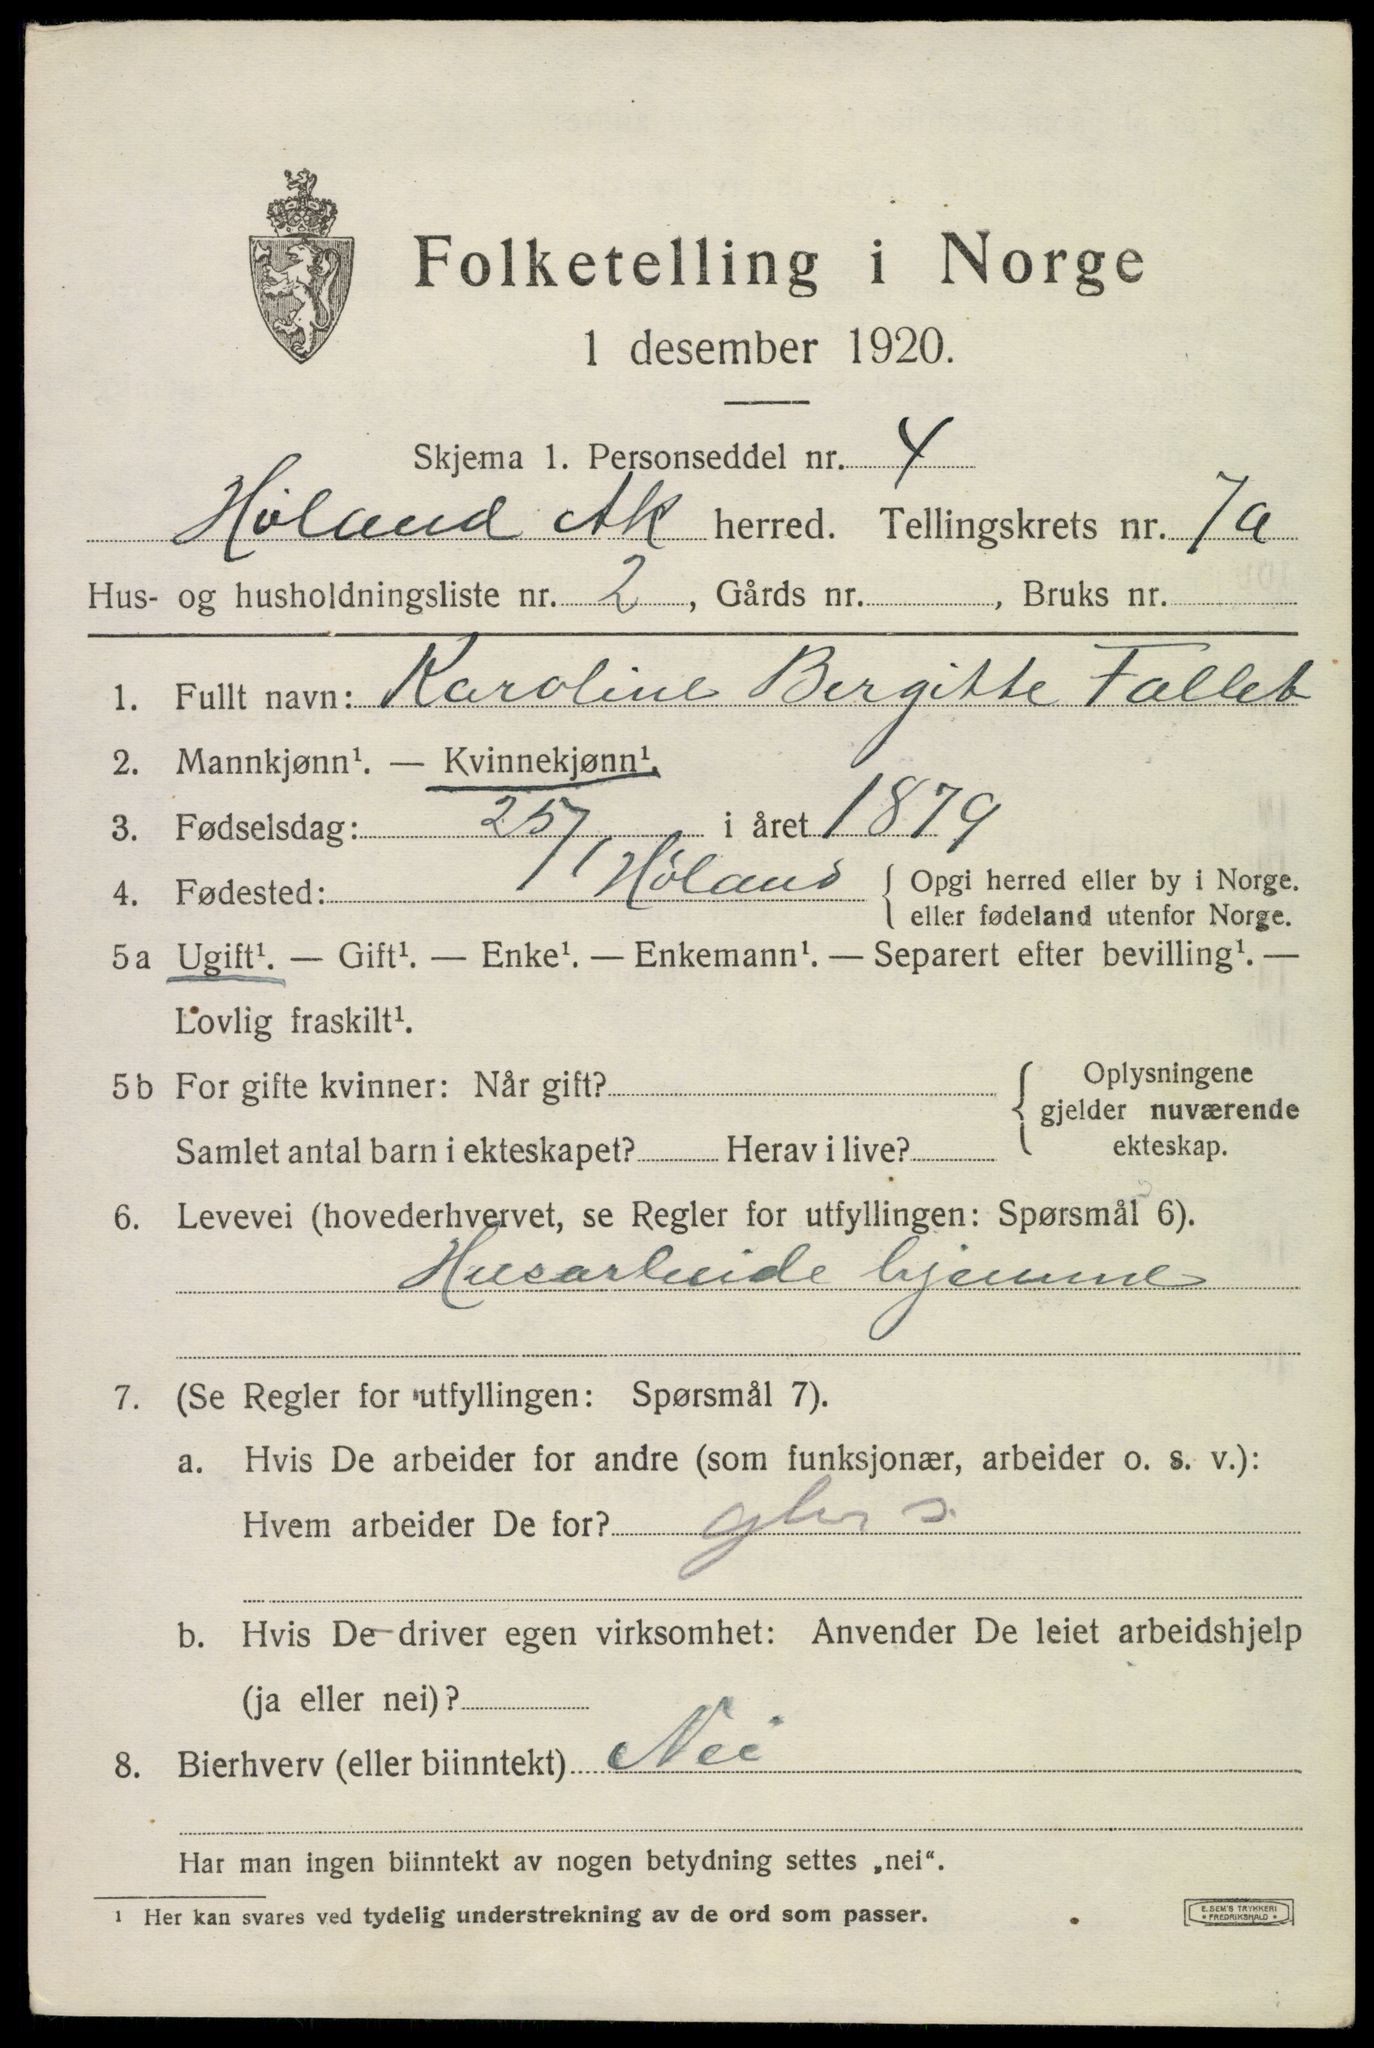 Folketelling i Norge
1 desember 1920.
Skjema 1. Personseddel nr. 4
Høland Ak herred. Tellingskrets nr. 7a
Hus- og husholdningsliste nr. 2, Gårds nr. , Bruks nr.
1. Fullt navn: Karoline Bergitte Fallet
2. Mannkjønn¹. — Kvinnekjønn¹.
3. Fødselsdag: 25/1 i året 1879
4. Fødested: Høland { Opgi herred eller by i Norge.
eller fødeland utenfor Norge.
5a Ugift¹. — Gift¹. — Enke¹. — Enkemann¹. — Separert efter bevilling¹. —
Lovlig fraskilt¹.
5b For gifte kvinner: Når gift? { Oplysningene
gjelder nuværende
Samlet antal barn i ekteskapet? Herav i live? ekteskap.
6. Levevei (hovederhvervet, se Regler for utfyllingen: Spørsmål 6).
Husarbeide hjemme
7. (Se Regler for utfyllingen: Spørsmål 7).
a. Hvis De arbeider for andre (som funksjonær, arbeider o. s. v.):
Hvem arbeider De for?
b. Hvis De driver egen virksomhet: Anvender De leiet arbeidshjelp
(ja eller nei)?
8. Bierhverv (eller biinntekt) Nei
Har man ingen biinntekt av nogen betydning settes „nei“.
¹ Her kan svares ved tydelig understrekning av de ord som passer.
E. SEM'S TRYKKERI
• FREDRIKSHALD •